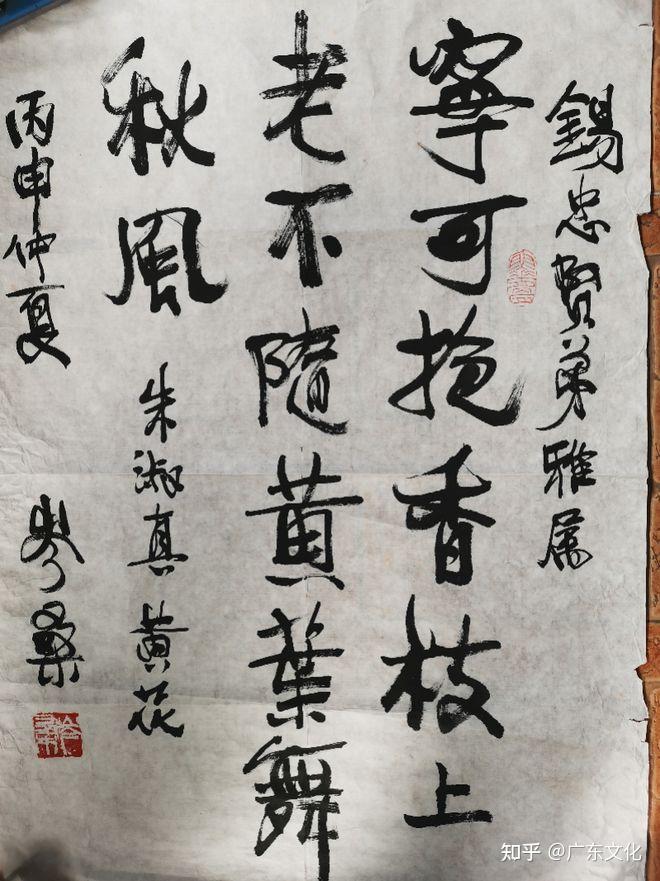 錫忠賢弟雅属
寧可抱香枝上
老不隨黄葉舞
秋風
朱淑真黄花
丙申仲夏
岑桑
知乎 @广东文化